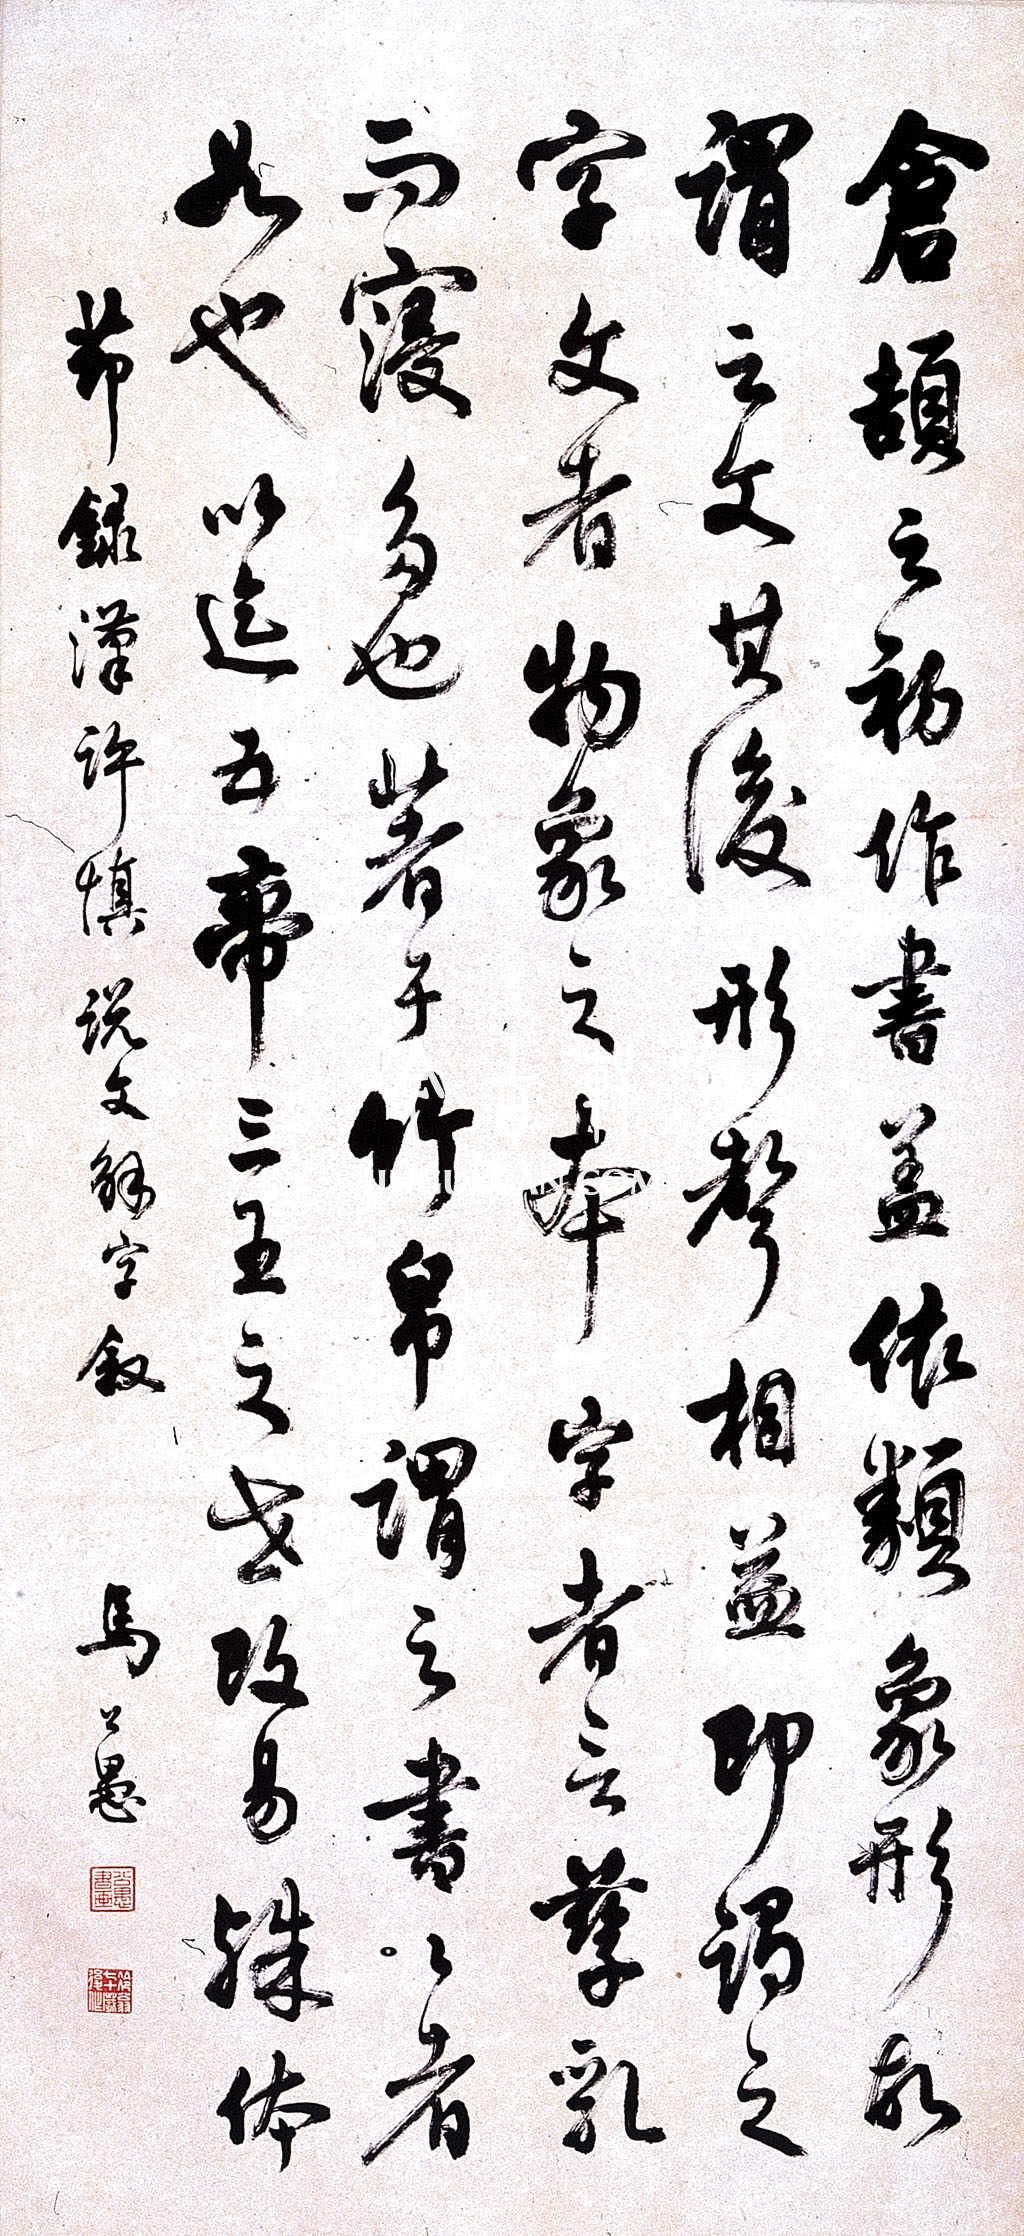 倉頡之初作書盖依類象形故
謂之文其後形聲相益即謂之
字文者物象之本字者言孳乳
而寖多也著于竹帛謂之書書者
如也以迄五帝三王之世改易殊体
節録漢許慎説文解字敘
馬公愚